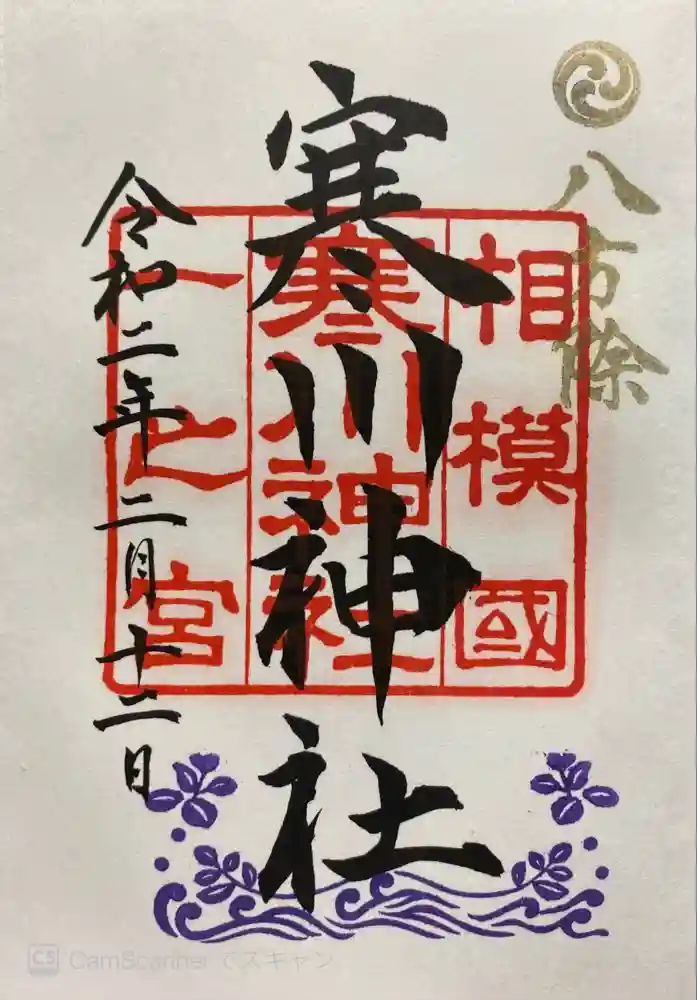 八方除
相模國
寒川神社
一之宮
寒川神社
令和二年二月十二日
CS CamScanner でスキャン